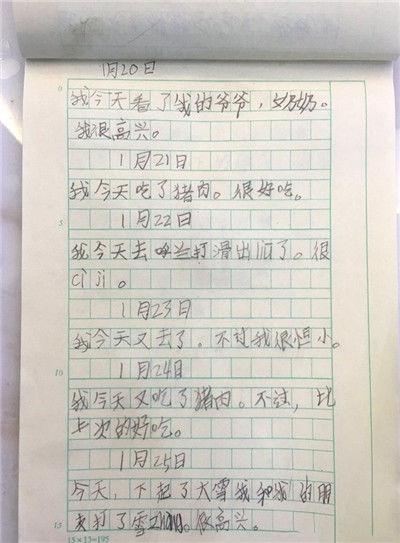 1月20日
我今天看了我的爷爷，奶奶。
我很高兴。
1月21日
我今天吃了猪肉。很好吃。
1月22日
我今天去呼兰打滑出溜了。很
ci ji。
1月23日
我今天又去了。不过我很胆小。
1月24日
我今天又吃了猪肉。不过，比
上次的好吃。
1月25日
今天，下起了大雪我和我的朋
友打了雪zhang。很高兴。
5
10
15
15×15=195